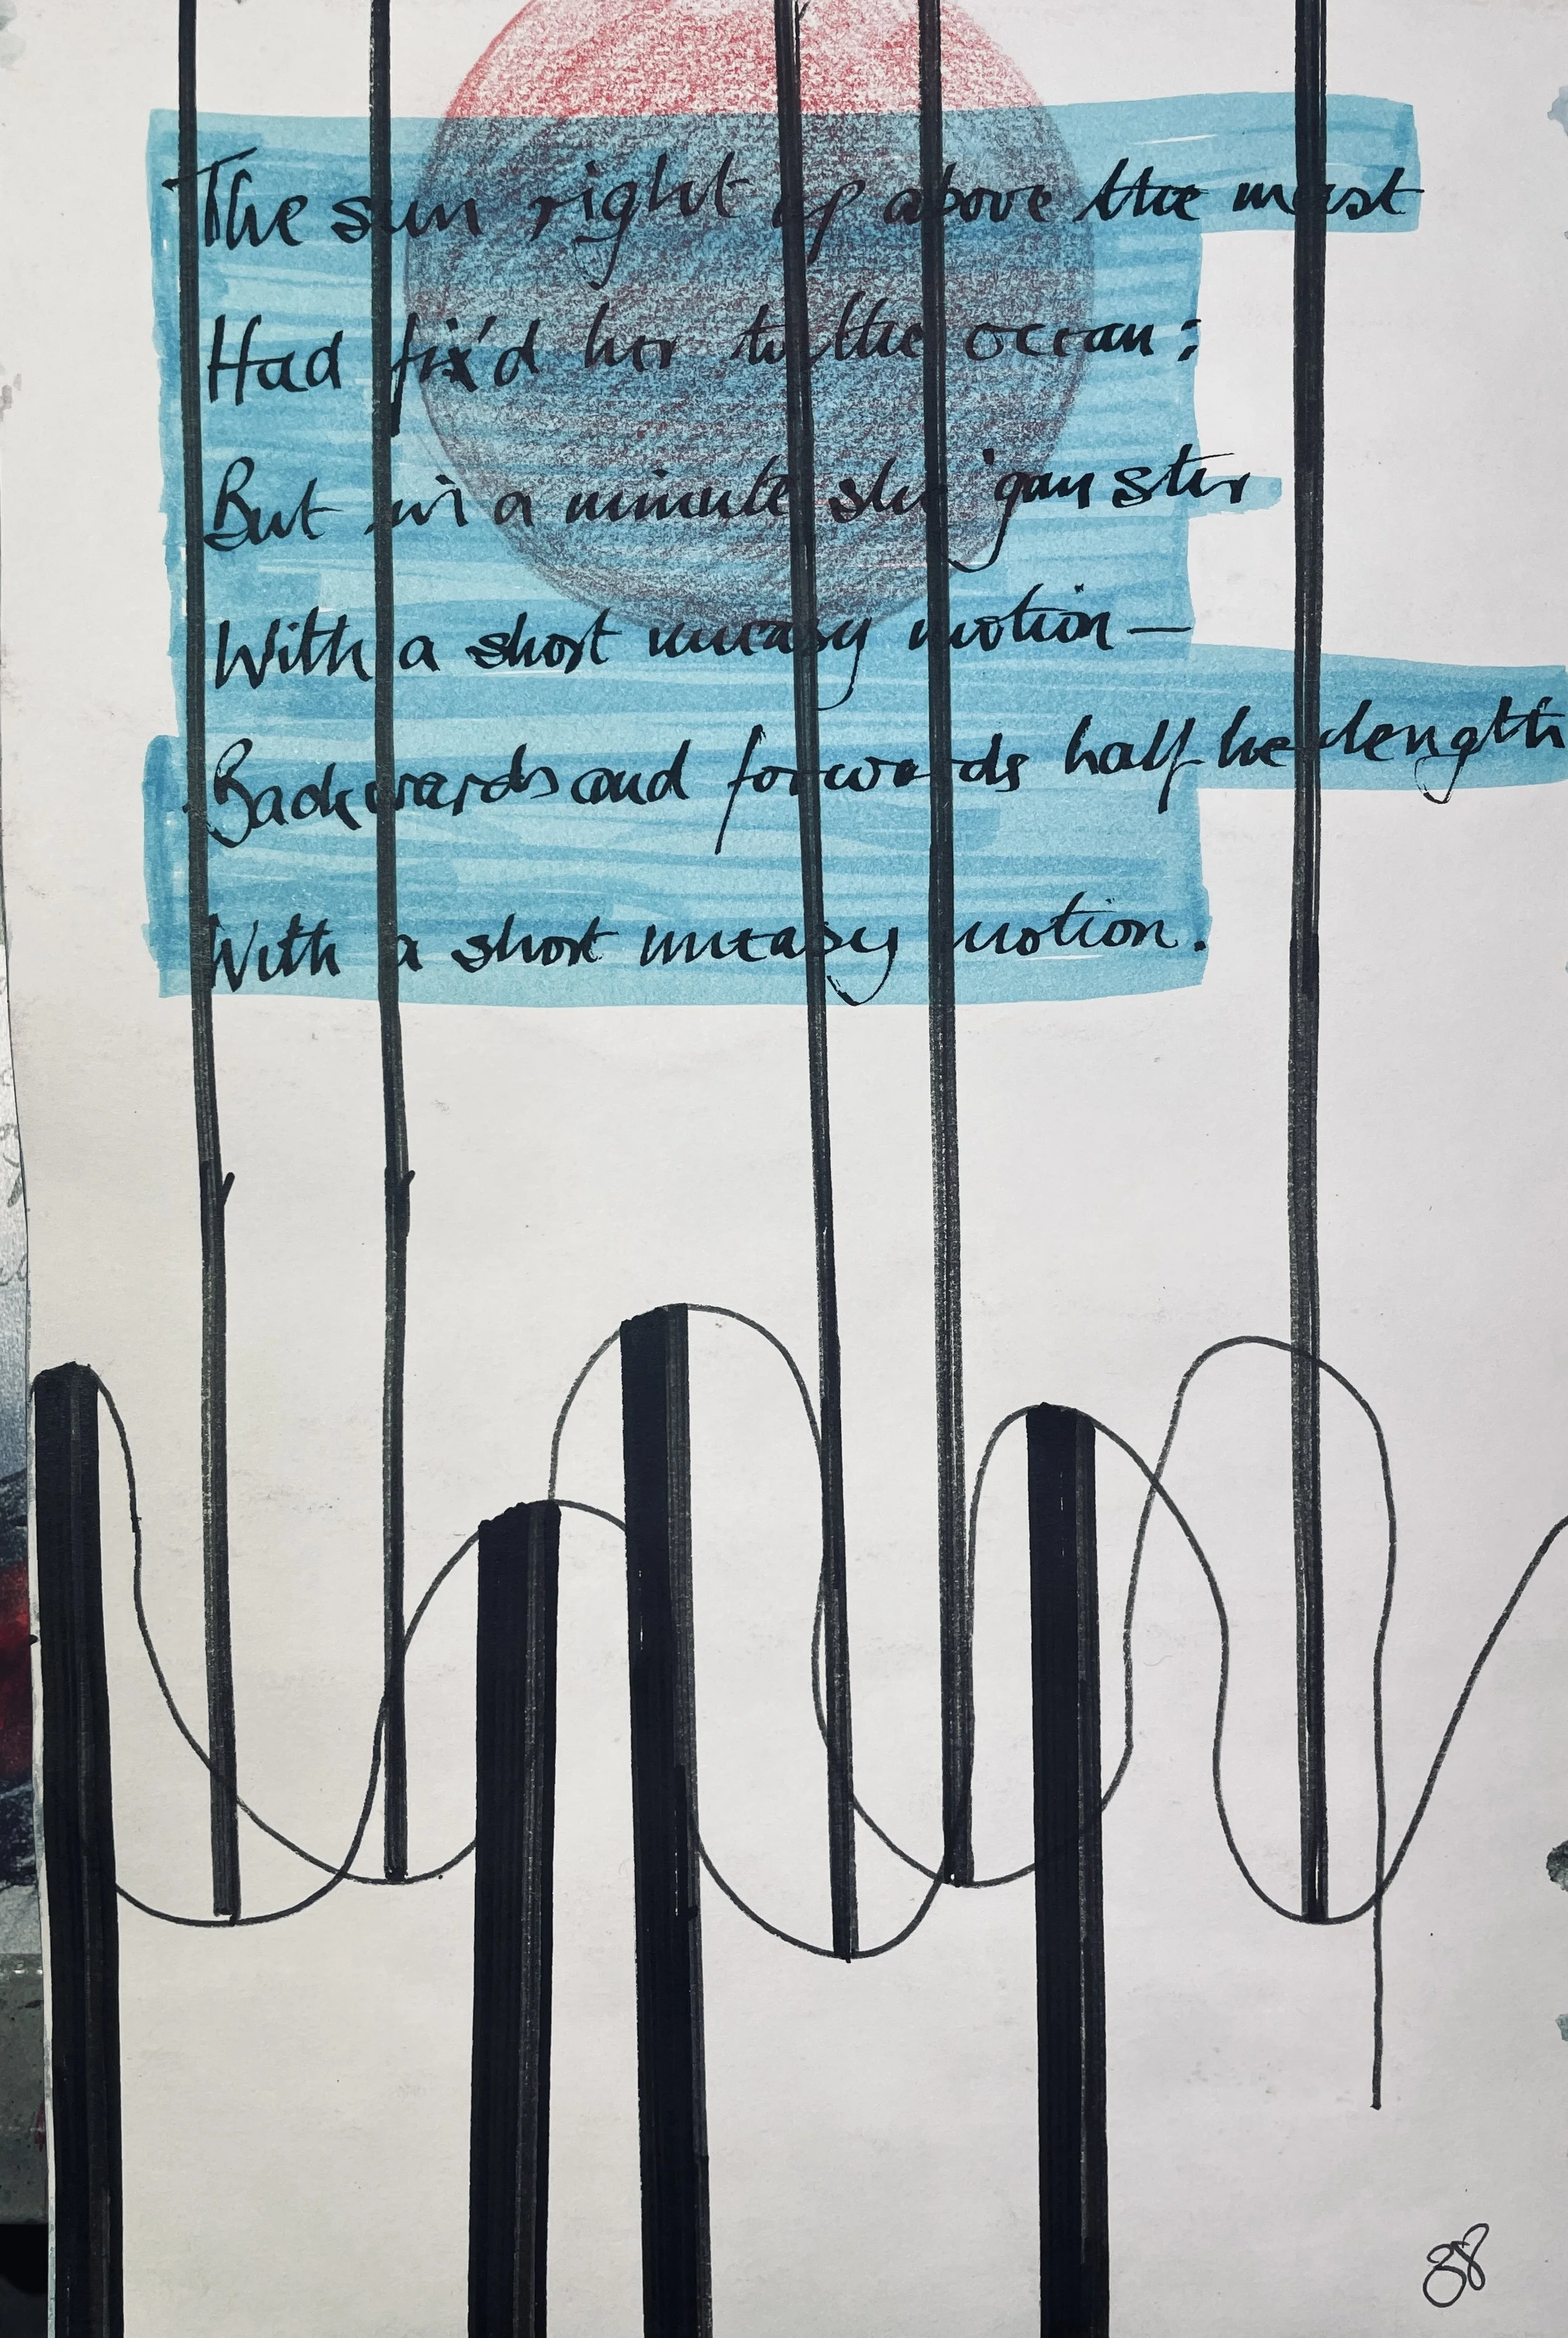 The sun right up above the mast
Had fix'd her to the ocean:
But in a minute she 'gan stir
With a short uneasy motion—
Backwards and forwards half her length
With a short uneasy motion.
88